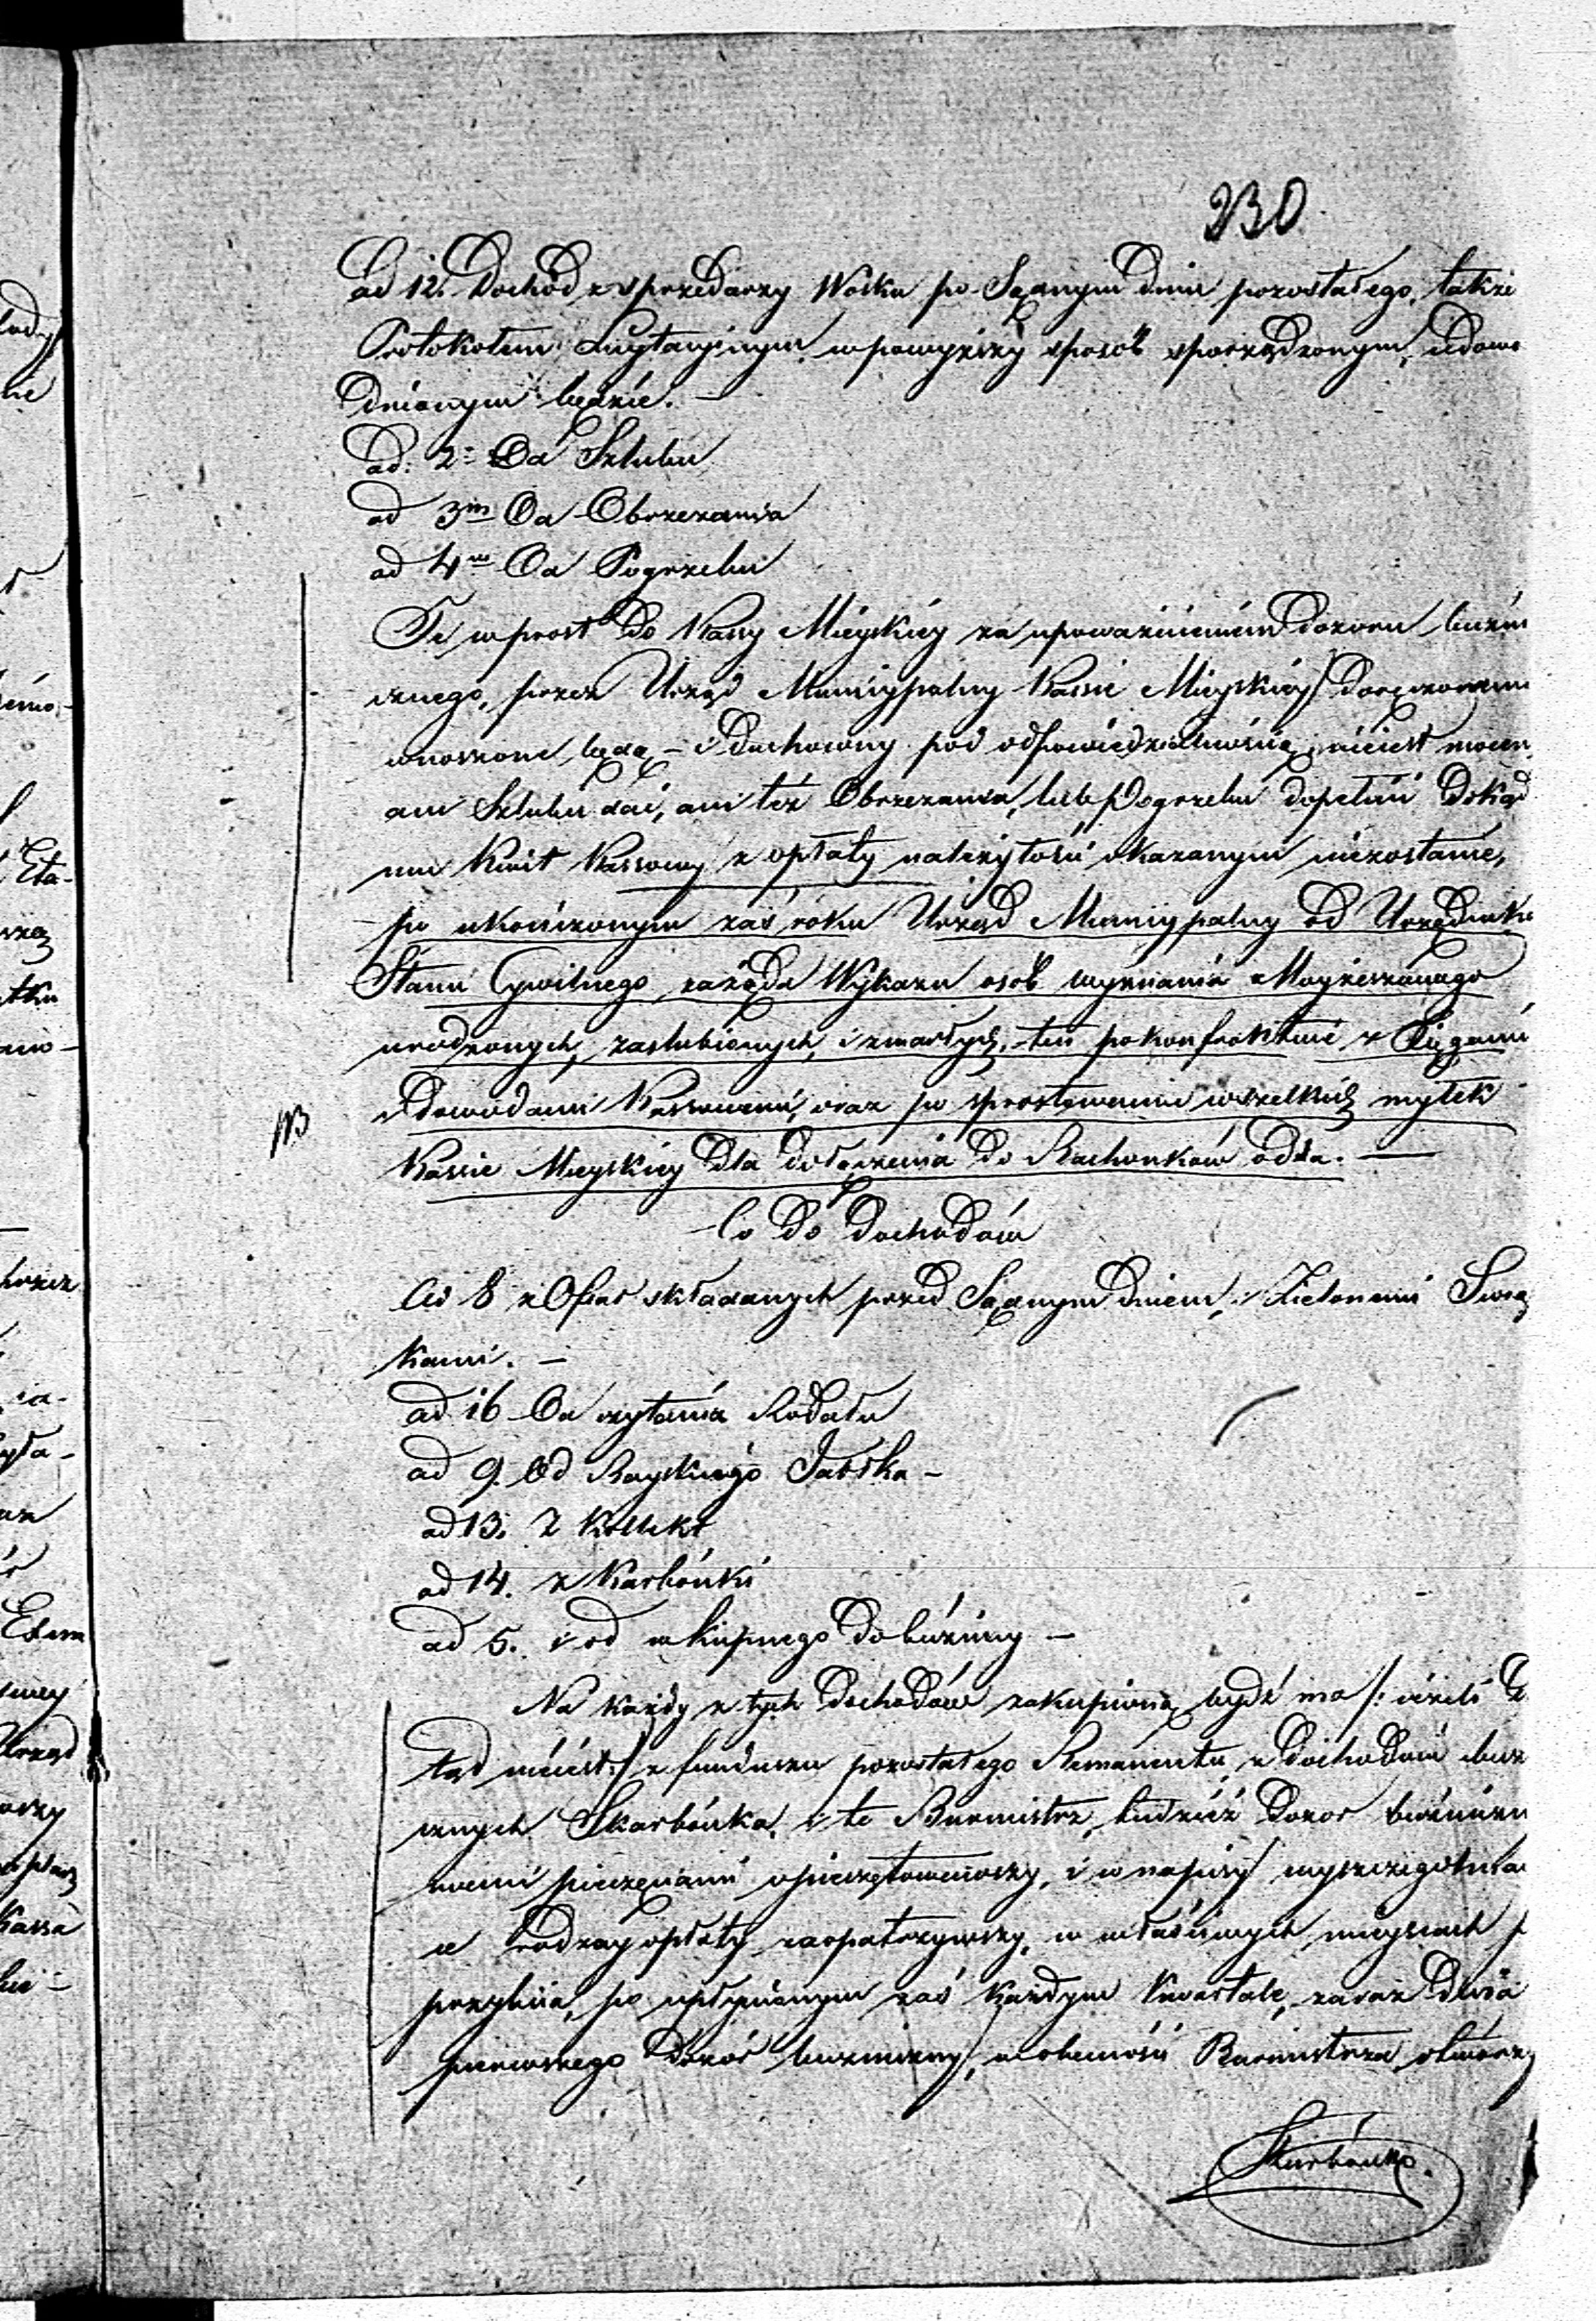 230
ad 12. Dochod z sprzedarzy Wosku po Sądnym Dniu pozostałego, także
Protokołem Licytacyinym w powyższy sposób sporządzonym, udowo
dnionym będzie. —
ad: 2 Od Szlubu
ad 3m Od Obrzezania
ad 4m Od Pogrzebu
Te wprost do Kassy Mieyskiey za upoważnieniem Dozoru bużni
cznego, przez Urząd Municypalny Kassie Mieyskiey doręczonym
wnoszone będą — i Duchowny pod odpowiedzialnością nieiest mocen
ani Szlubu dać, ani też Obrzezania, lub Pogrzebu dopełnić Dokąd
mu Kwit Kassowy z opłaty należytości okazanym niezostanie,
po ukończonym zaś roku Urząd Municypalny od Urzędnika
Stanu Cywilnego zażąda Wykazu osób wyznania Moyżeszowego
urodzonych, zaslubionych, i zmarłych, ten po konfrontacie z Xięgami
i dowodami Kassowemi, oraz po sprostowaniu wszelkich myłek
NB
Kassie Mieyskiey Dla dołączenia do Rachonków odda. —
Co Do Dochodów
Ad 8 z Ofiar składanych przed Sądnym Dniem, i Zielonemi Swią
tkami. —
ad 16 Od czytania Rodału
ad 9. Od Rayskiego Jabłka —
ad 13. Z Kollekt
ad 14. z Karbónki
ad 5. i od wkupnego do bużnicy —
Na każdy z tych dochodów zakupioną bydź ma /: ieżeli D
tąd nieiest :/ z funduszu pozostałego Remanentu z dochodów buż
cznych Skarbónka, i te Burmistrz, tudzież Dozor bużniczny
swemi pieczęciami opieczętowawszy, i w napisy wyszczegolnia
ce rodzay opłaty zaopatrzywszy, w właściwych mieyscach p
przybiia, po upłynionym zaś każdym kwartale, zaraz Dnia
pierwszego Dozór bużniczny, w obecności Burmistrza otworzy
Skarbónkę.